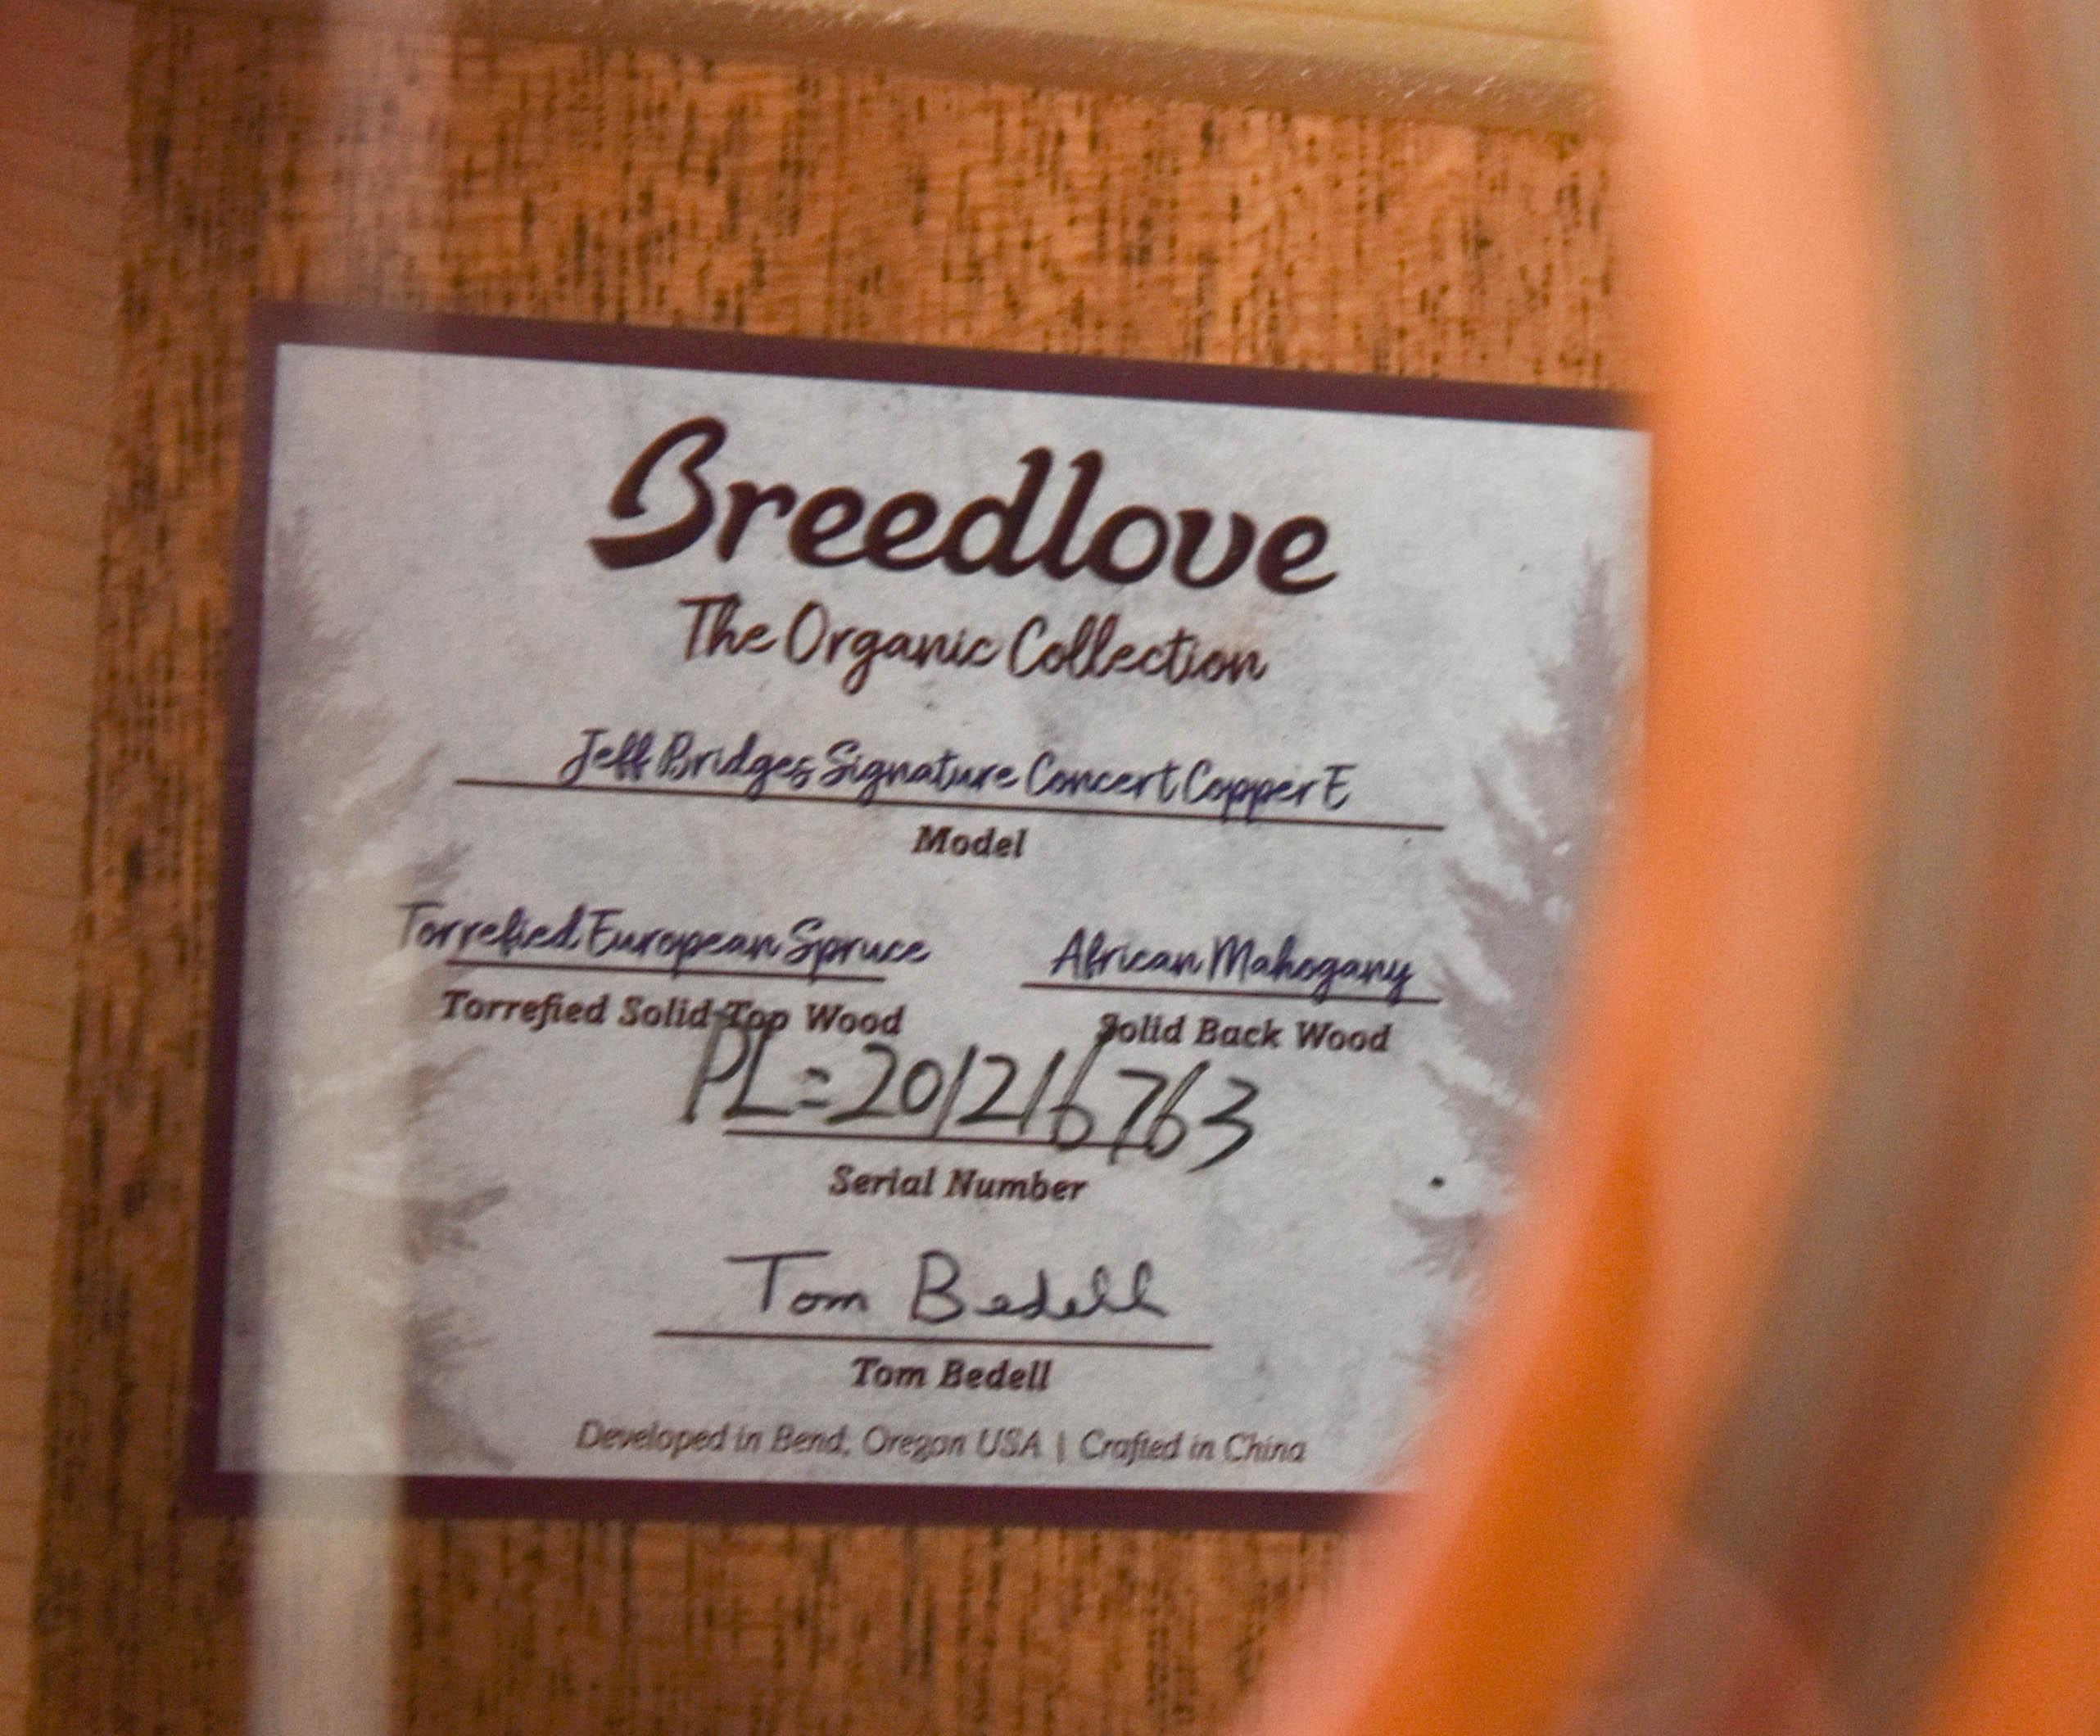 Breedlove
The Organic Collection
Jeff Bridges Signature Concert Copper E
Model
Torrefied European Spruce African Mahogany
Torrefied Solid Top Wood Solid Back Wood
PL=201216763
Serial Number
Tom Bedell
Tom Bedell
Developed in Bend, Oregon USA | Crafted in China